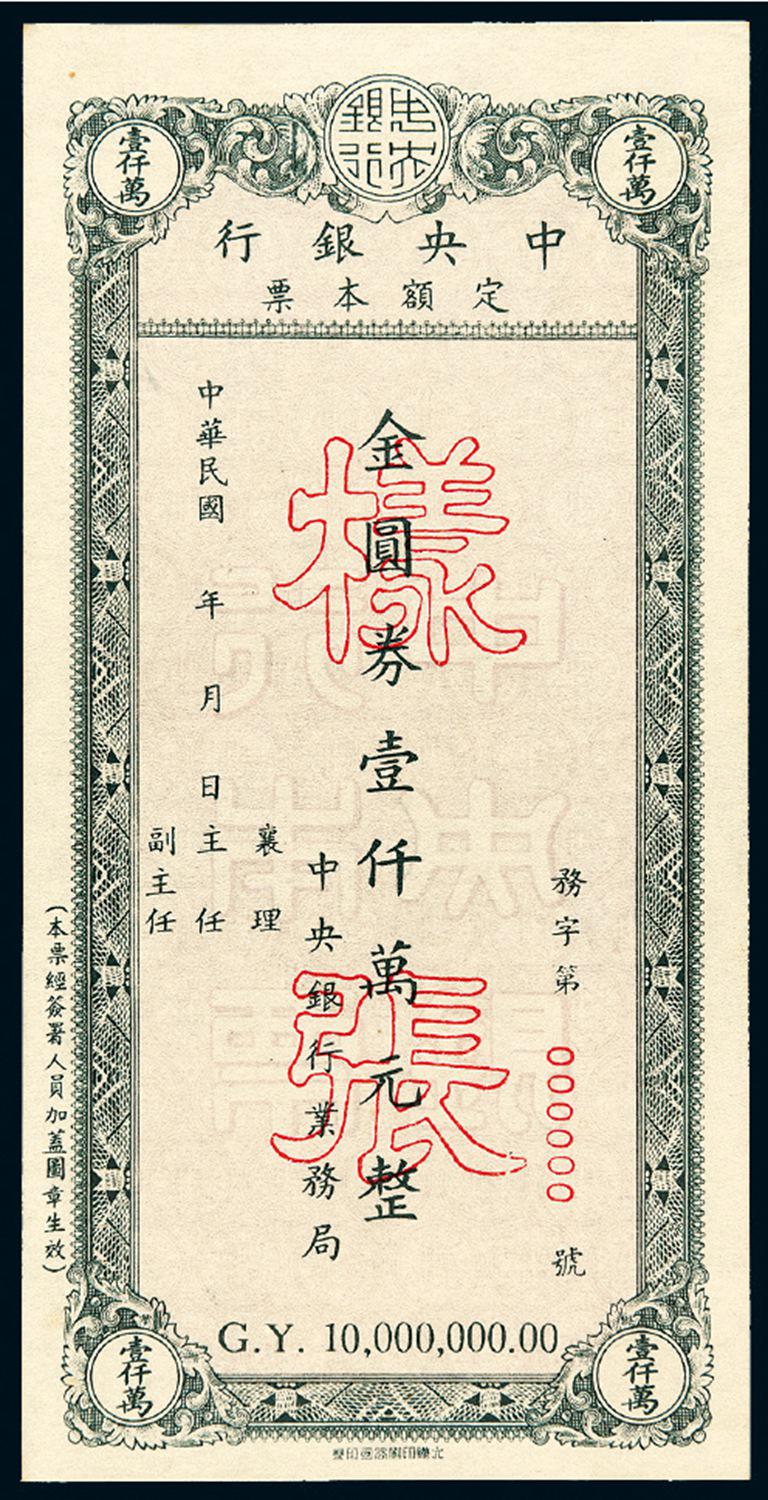 中央銀行
壹仟萬
壹仟萬
中央銀行
定額本票
務字第000000號
金圓券壹仟萬元整
樣張
中央銀行業務局
襄理
中華民國 年 月 日主任
副主任
(本票經簽署人員加蓋圖章生效)
G.Y. 10,000,000.00
壹仟萬
壹仟萬